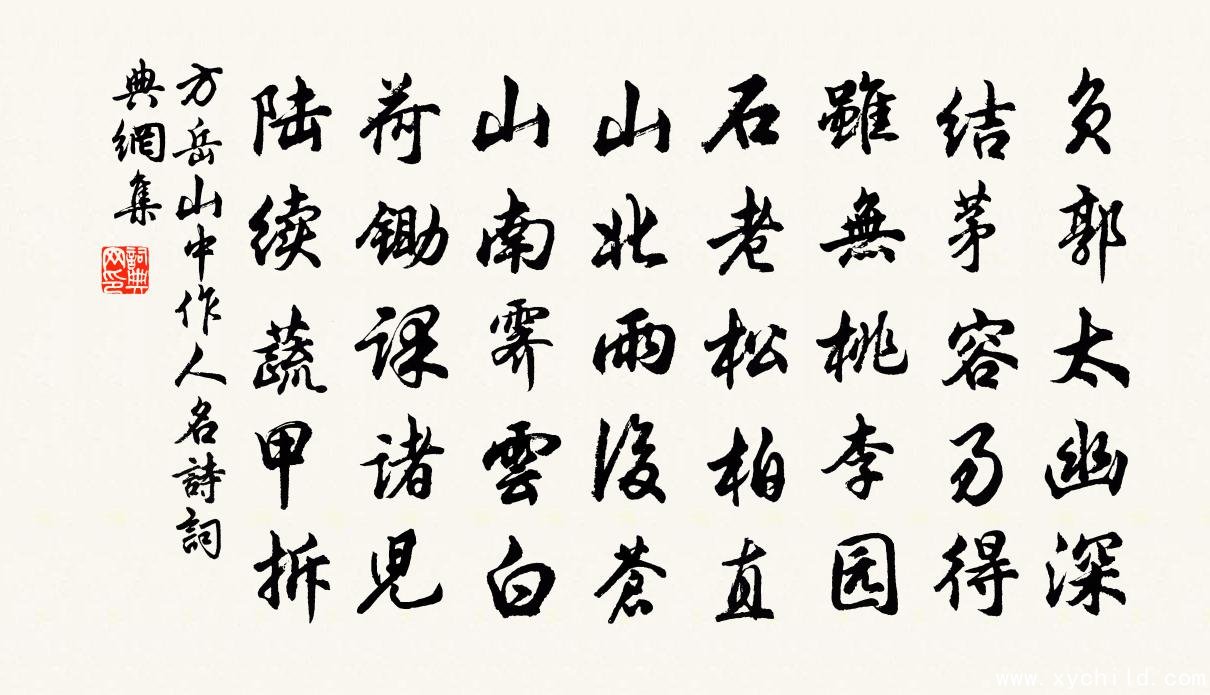 负郭太幽深
结茅容易得
雖無桃李园
石老松柏直
山北雨後蒼
山南霽雲白
荷锄课诸児
陆续蔬甲拆
方岳山中作人名詩詞
典網集
詞典
网印
www.xychild.com